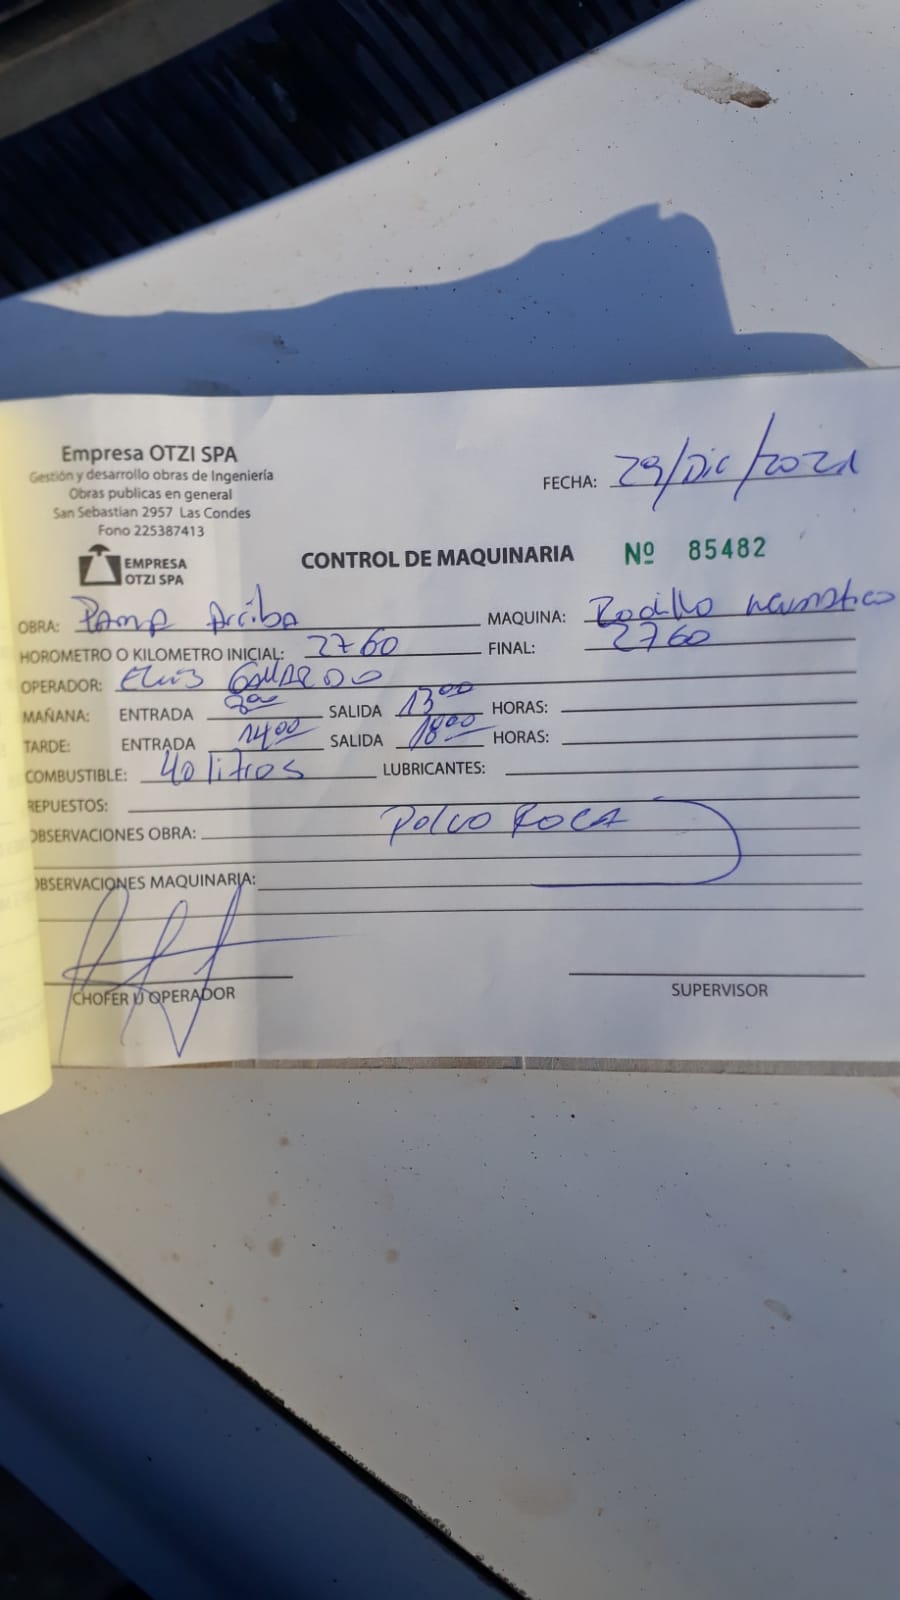 Empresa OTZI SPA
Gestión y desarrollo obras de Ingeniería
Obras publicas en general
San Sebastian 2957 Las Condes
Fono 225387413
EMPRESA
OTZI SPA
FECHA: 29/Dic/2021
CONTROL DE MAQUINARIA Nº 85482
OBRA: PAMPA Arriba MAQUINA: Rodillo neumatico
HOROMETRO O KILOMETRO INICIAL: 2760 FINAL: 2760
OPERADOR: GALLARDO
MAÑANA: ENTRADA 800 SALIDA 1300 HORAS:
TARDE: ENTRADA 1400 SALIDA 1800 HORAS:
COMBUSTIBLE: 40 litros LUBRICANTES:
REPUESTOS:
OBSERVACIONES OBRA: Polvo ROCA
OBSERVACIONES MAQUINARIA:
CHOFER U OPERADOR SUPERVISOR